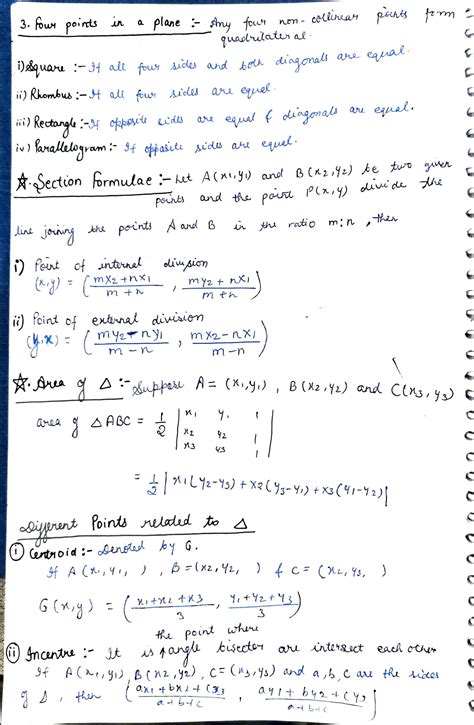 3. Four points in a plane :- Any four non-collinear points form
quadrilateral.
i) Square :- If all four sides and both diagonals are equal.
ii) Rhombus :- If all four sides are equal.
iii) Rectangle :- If opposite sides are equal & diagonals are equal.
iv) Parallelogram :- If opposite sides are equal.
☆. Section Formulae :- Let A(x1,y1) and B(x2,y2) be two given
points and the point P(x,y) divide the
line joining the points A and B in the ratio m:n, then
i) Point of internal division
(x,y) = ( mx2+nx1 / m+n , my2+nx1 / m+n )
ii) Point of external division
(y,x) = ( my2-ny1 / m-n , mx2-nx1 / m-n )
☆. Area of Δ :- Suppose A = (x1,y1), B(x2,y2) and C(x3,y3)
area of ΔABC = 1/2 | x1 y1 1
x2 y2 1
x3 y3 1 |
= 1/2 | x1(y2-y3) + x2(y3-y1) + x3(y1-y2) |
Different Points related to Δ
i) Centroid :- Denoted by G.
If A(x1,y1, ), B=(x2,y2, ) & C=(x2,y3, )
G(x,y) = ( x1+x2+x3 / 3 , y1+y2+y3 / 3 )
the point where
ii) Incentre :- It is angle bisectors are intersect each other
If A(x1,y1), B(x2,y2), C=(x3,y3) and a,b,c are the sides
of Δ, then ( ax1+bx2+cx3 / a+b+c , ay1+by2+cy3 / a+b+c )